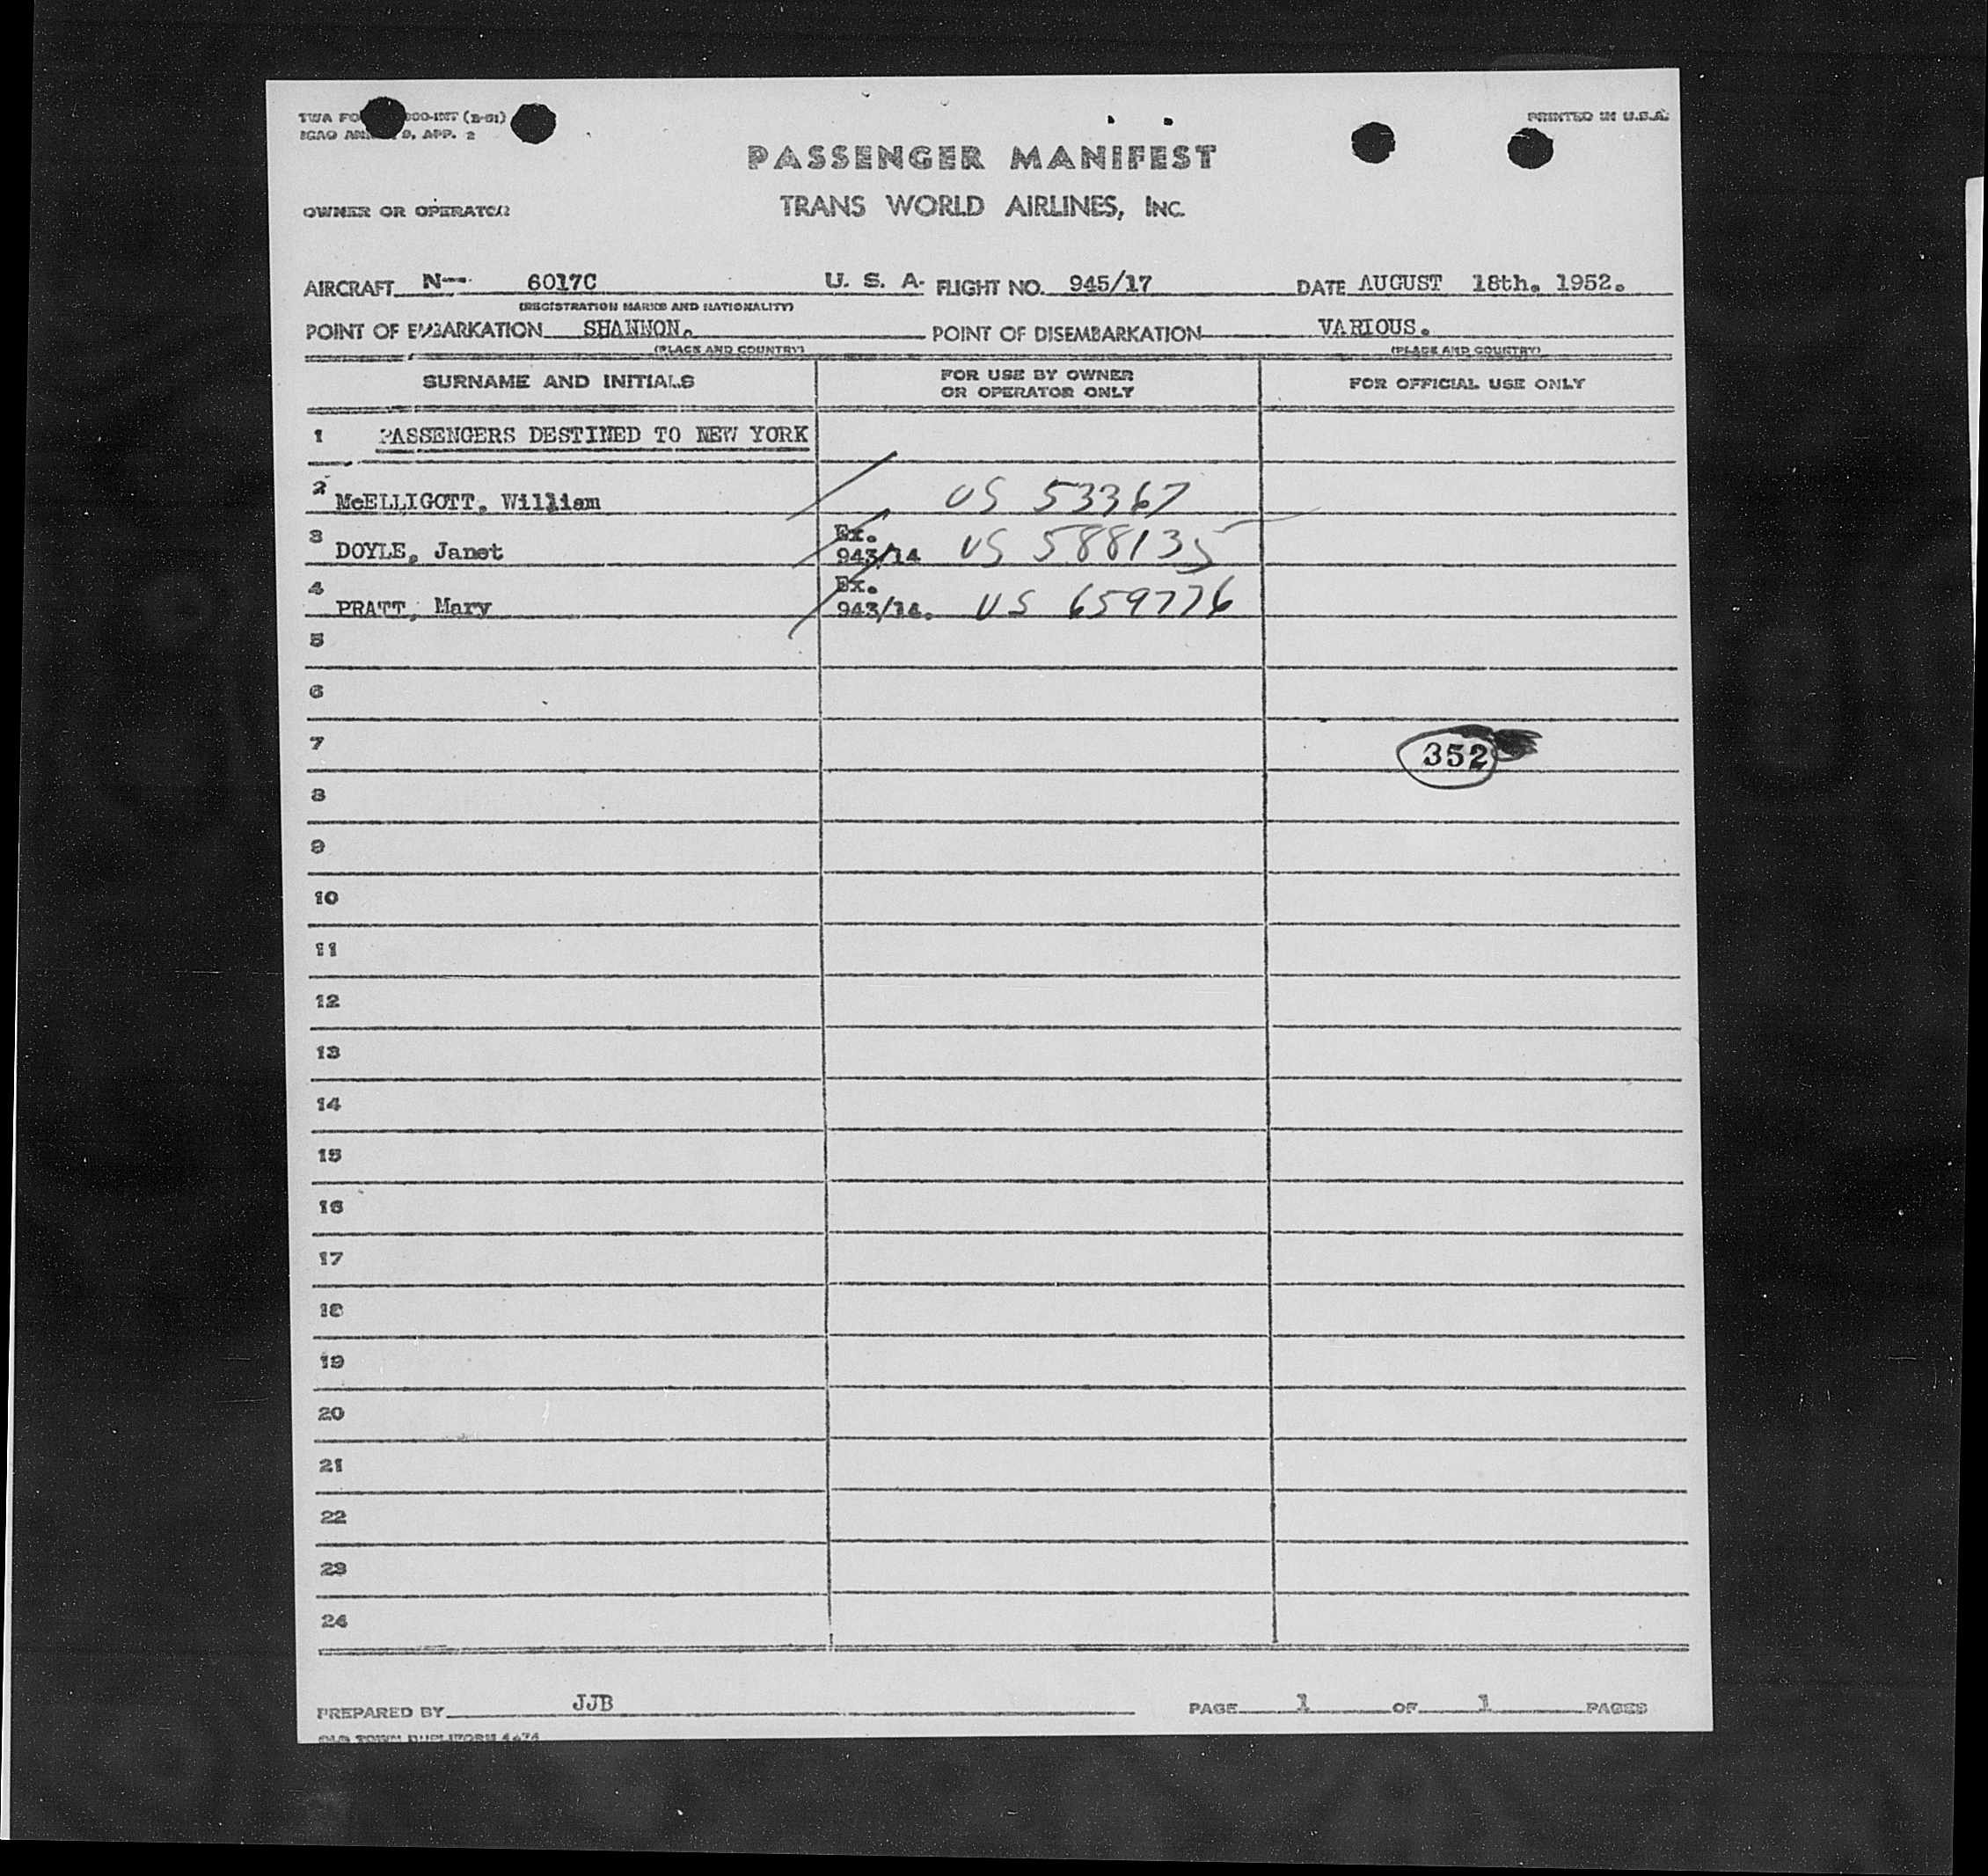 TWA FO 000-INT (2-51)
ICAO AN 9, APP. 2
PRINTED IN U.S.A.
PASSENGER MANIFEST
OWNER OR OPERATOR TRANS WORLD AIRLINES, INC.
AIRCRAFT N-- 6017C U. S. A. FLIGHT NO. 945/17 DATE AUGUST 18th. 1952.
(REGISTRATION MARKS AND NATIONALITY)
POINT OF EMBARKATION SHANNON. POINT OF DISEMBARKATION VARIOUS.
(PLACE AND COUNTRY) (PLACE AND COUNTRY)
SURNAME AND INITIALS FOR USE BY OWNER OR OPERATOR ONLY FOR OFFICIAL USE ONLY
1 PASSENGERS DESTINED TO NEW YORK
2 McELLIGOTT, William US 53367
3 DOYLE, Janet Ex. 943/14 US 588135
4 PRATT, Mary Ex. 943/14. US 659776
5
6
7 352
8
9
10
11
12
13
14
15
16
17
18
19
20
21
22
23
24
PREPARED BY JJB PAGE 1 OF 1 PAGES